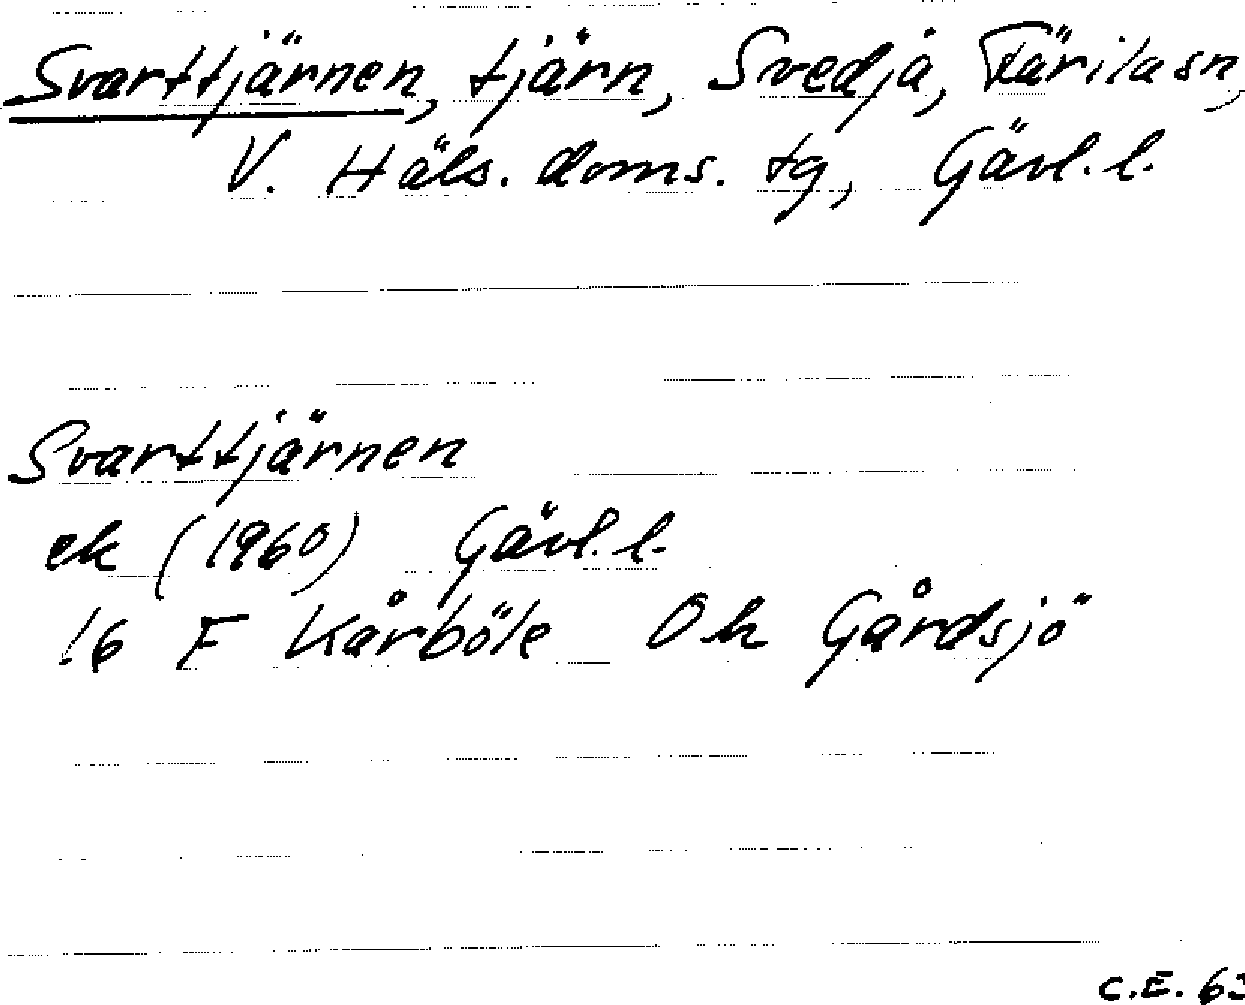 Svarttjärnen, tjärn, Svedjå, Färila sn,
V. Häls. doms. tg, Gävl. l.
Svarttjärnen
ek (1960) Gävl. l.
16 F Kårböle Ok Gårdsjö
C.E. 63